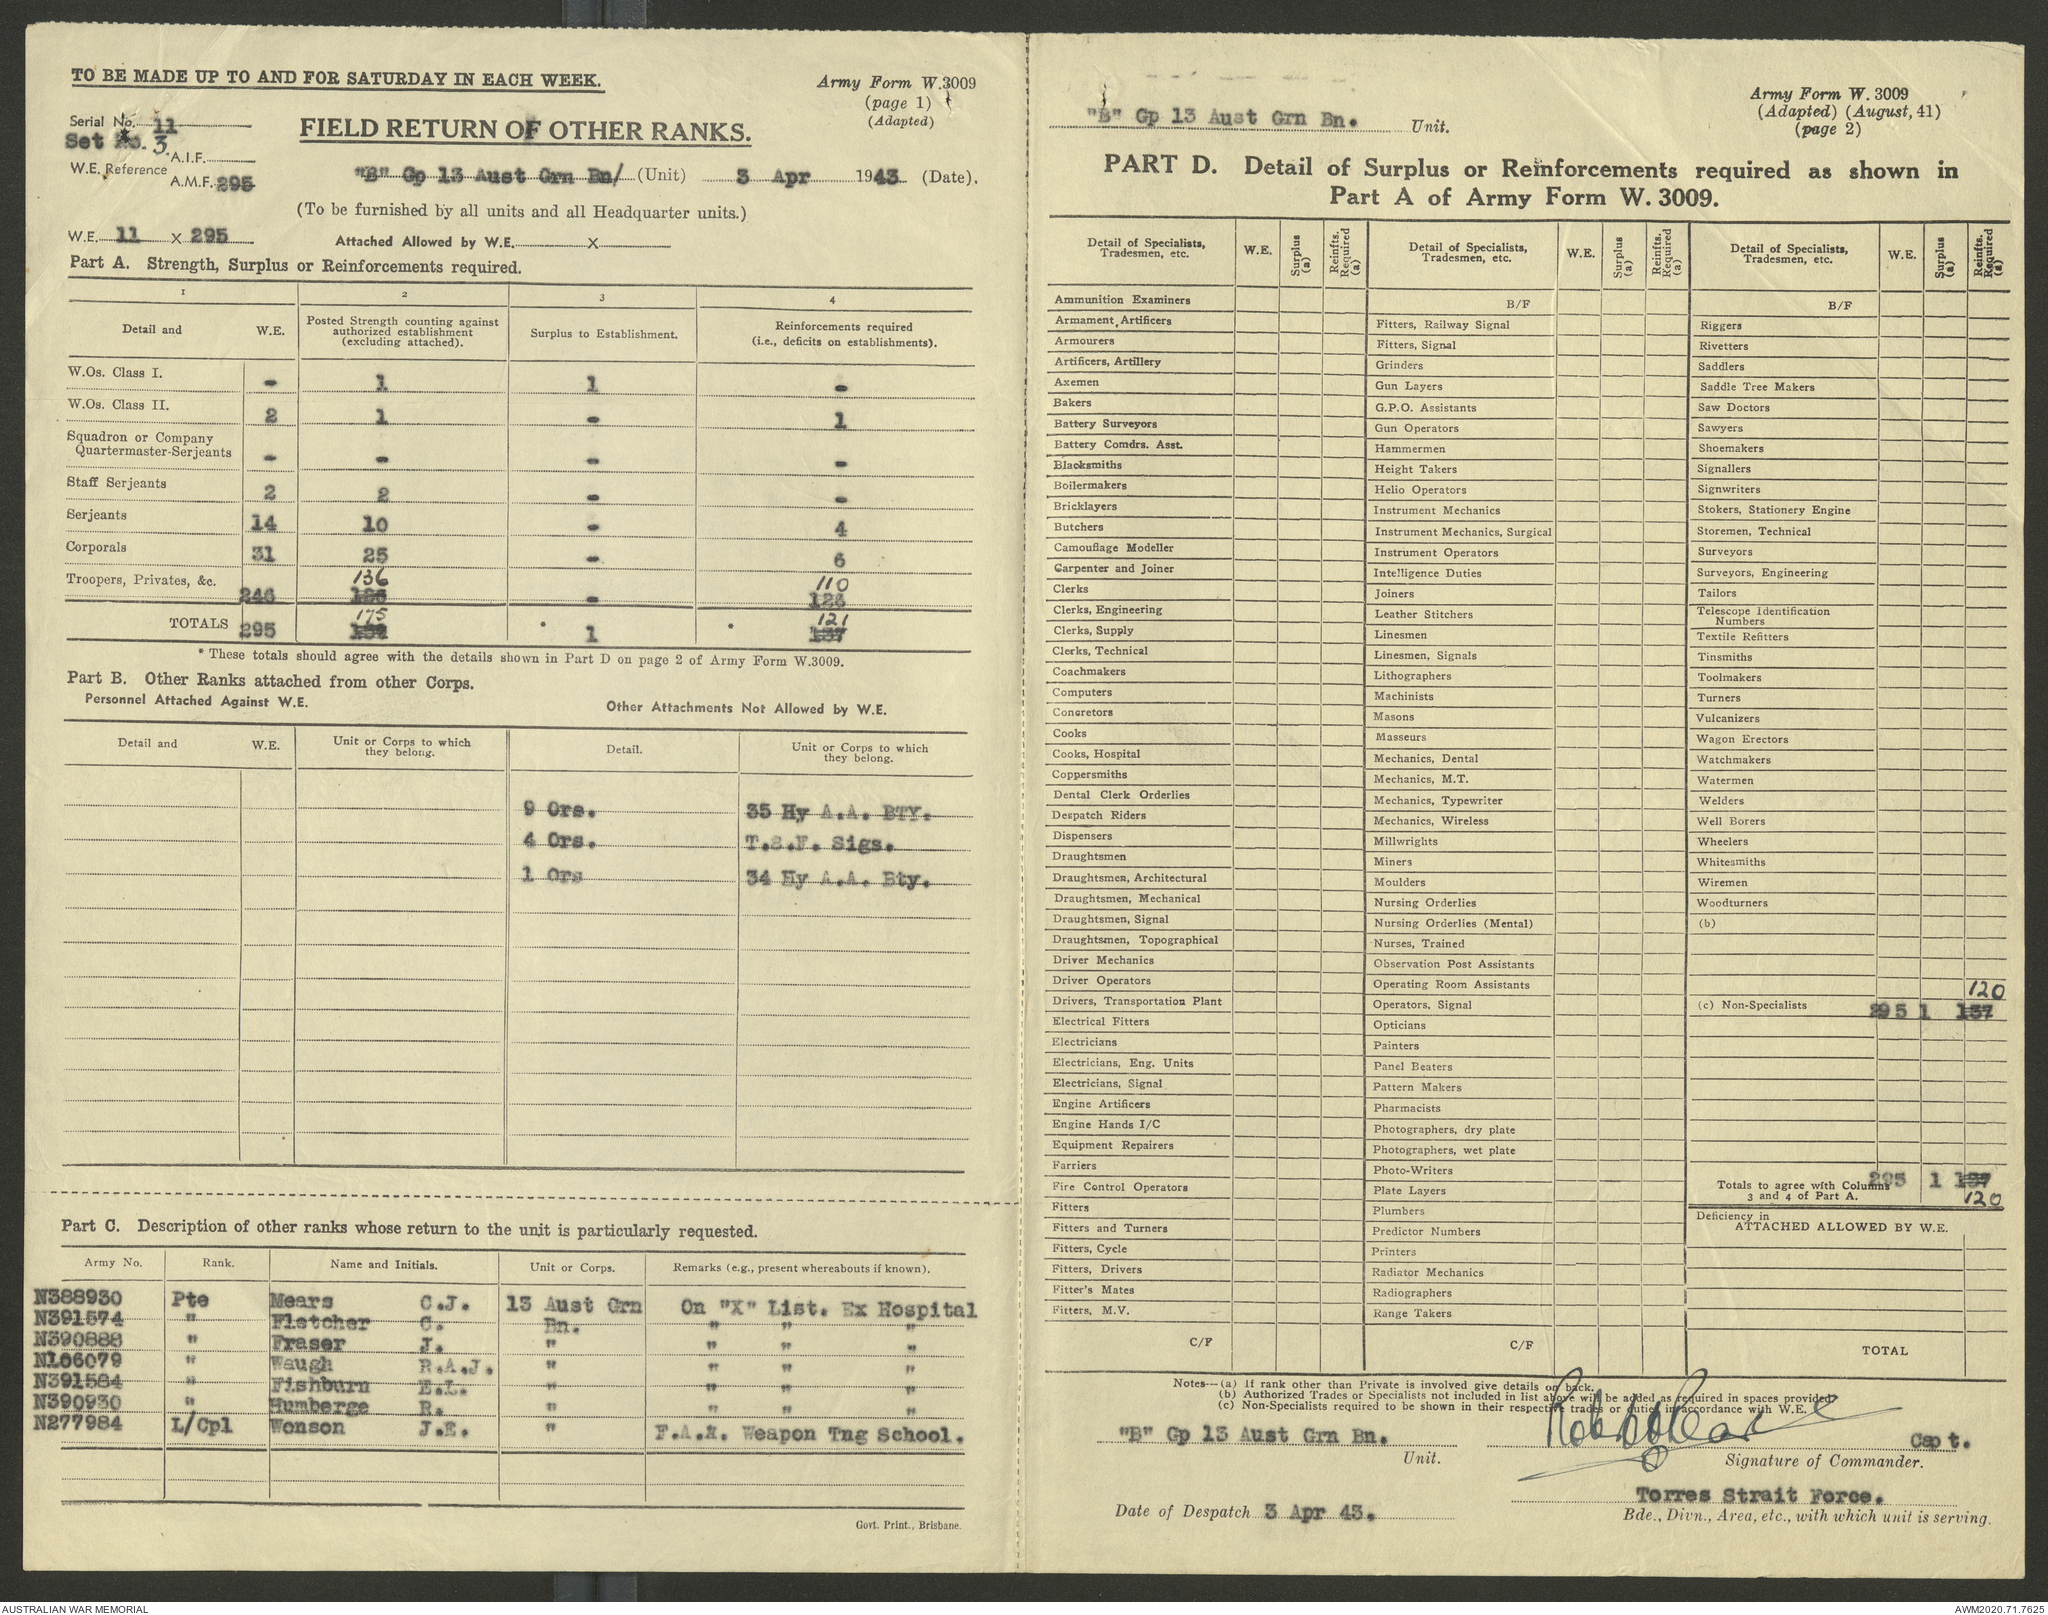 TO BE MADE UP TO AND FOR SATURDAY IN EACH WEEK.
Army Form W.3009
(page 1)
(Adapted)
Serial No. 11
Set No. 3.
W.E. Reference A.I.F.
A.M.F. 295
W.E. 11 X 295
FIELD RETURN OF OTHER RANKS.
"B" Gp 13 Aust Grn Bn/ (Unit) 3 Apr 1943 (Date).
(To be furnished by all units and all Headquarter units.)
Attached Allowed by W.E. X
Part A. Strength, Surplus or Reinforcements required.
1 2 3 4
Detail and W.E. Posted Strength counting against authorized establishment (excluding attached). Surplus to Establishment. Reinforcements required (i.e., deficits on establishments).
W.Os. Class I. - 1 1 -
W.Os. Class II. 2 1 - 1
Squadron or Company
Quartermaster-Serjeants - - - -
Staff Serjeants 2 2 - -
Serjeants 14 10 - 4
Corporals 31 25 - 6
136 110
Troopers, Privates, &c. 246 - 126
175 121
TOTALS 295 * 1 * 137
* These totals should agree with the details shown in Part D on page 2 of Army Form W.3009.
Part B. Other Ranks attached from other Corps.
Personnel Attached Against W.E. Other Attachments Not Allowed by W.E.
Detail and W.E. Unit or Corps to which they belong. Detail. Unit or Corps to which they belong.
9 Ors. 35 Hy A.A. BTY.
4 Ors. T.S.F. Sigs.
1 Ors 34 Hy A.A. Bty.
Part C. Description of other ranks whose return to the unit is particularly requested.
Army No. Rank. Name and Initials. Unit or Corps. Remarks (e.g., present whereabouts if known).
N388930 Pte Mears C.J. 13 Aust Grn On "X" List. Ex Hospital
N391574 " Fletcher C. Bn. " " "
N390888 " Fraser J. " " " "
N106079 " Waugh R.A.J. " " " "
N391584 " Fishburn E.L. " " " "
N390930 " Humberge R. " " " "
N277984 L/Cpl Wonson J.E. " F.A.X. Weapon Tng School.
Govt. Print., Brisbane.
"B" Gp 13 Aust Grn Bn. Unit.
Army Form W. 3009
(Adapted) (August, 41)
(page 2)
PART D. Detail of Surplus or Reinforcements required as shown in
Part A of Army Form W. 3009.
Detail of Specialists, Tradesmen, etc. W.E. Surplus (a) Reinfts. Required (a)
Ammunition Examiners
Armament Artificers
Armourers
Artificers, Artillery
Axemen
Bakers
Battery Surveyors
Battery Comdrs. Asst.
Blacksmiths
Boilermakers
Bricklayers
Butchers
Camouflage Modeller
Carpenter and Joiner
Clerks
Clerks, Engineering
Clerks, Supply
Clerks, Technical
Coachmakers
Computers
Concretors
Cooks
Cooks, Hospital
Coppersmiths
Dental Clerk Orderlies
Despatch Riders
Dispensers
Draughtsmen
Draughtsmen, Architectural
Draughtsmen, Mechanical
Draughtsmen, Signal
Draughtsmen, Topographical
Driver Mechanics
Driver Operators
Drivers, Transportation Plant
Electrical Fitters
Electricians
Electricians, Eng. Units
Electricians, Signal
Engine Artificers
Engine Hands I/C
Equipment Repairers
Farriers
Fire Control Operators
Fitters
Fitters and Turners
Fitters, Cycle
Fitters, Drivers
Fitter's Mates
Fitters, M.V.
C/F
Detail of Specialists, Tradesmen, etc. W.E. Surplus (a) Reinfts. Required (a)
B/F
Fitters, Railway Signal
Fitters, Signal
Grinders
Gun Layers
G.P.O. Assistants
Gun Operators
Hammermen
Height Takers
Helio Operators
Instrument Mechanics
Instrument Mechanics, Surgical
Instrument Operators
Intelligence Duties
Joiners
Leather Stitchers
Linesmen
Linesmen, Signals
Lithographers
Machinists
Masons
Masseurs
Mechanics, Dental
Mechanics, M.T.
Mechanics, Typewriter
Mechanics, Wireless
Millwrights
Miners
Moulders
Nursing Orderlies
Nursing Orderlies (Mental)
Nurses, Trained
Observation Post Assistants
Operating Room Assistants
Operators, Signal
Opticians
Painters
Panel Beaters
Pattern Makers
Pharmacists
Photographers, dry plate
Photographers, wet plate
Photo-Writers
Plate Layers
Plumbers
Predictor Numbers
Printers
Radiator Mechanics
Radiographers
Range Takers
C/F
Detail of Specialists, Tradesmen, etc. W.E. Surplus (a) Reinfts. Required (a)
B/F
Riggers
Rivetters
Saddlers
Saddle Tree Makers
Saw Doctors
Sawyers
Shoemakers
Signallers
Signwriters
Stokers, Stationery Engine
Storemen, Technical
Surveyors
Surveyors, Engineering
Tailors
Telescope Identification
Numbers
Textile Refitters
Tinsmiths
Toolmakers
Turners
Vulcanizers
Wagon Erectors
Watchmakers
Watermen
Welders
Well Borers
Wheelers
Whitesmiths
Wiremen
Woodturners
(b)
120
(c) Non-Specialists 295 1 137
Totals to agree with Columns 295 1 137
3 and 4 of Part A. 120
Deficiency in
ATTACHED ALLOWED BY W.E.
TOTAL
Notes—(a) If rank other than Private is involved give details on back.
(b) Authorized Trades or Specialists not included in list above will be added as required in spaces provided.
(c) Non-Specialists required to be shown in their respective trades or duties in accordance with W.E.
"B" Gp 13 Aust Grn Bn. Capt.
Unit. Signature of Commander.
Torres Strait Force.
Date of Despatch 3 Apr 43. Bde., Divn., Area, etc., with which unit is serving.
AUSTRALIAN WAR MEMORIAL
AWM2020.71.7625